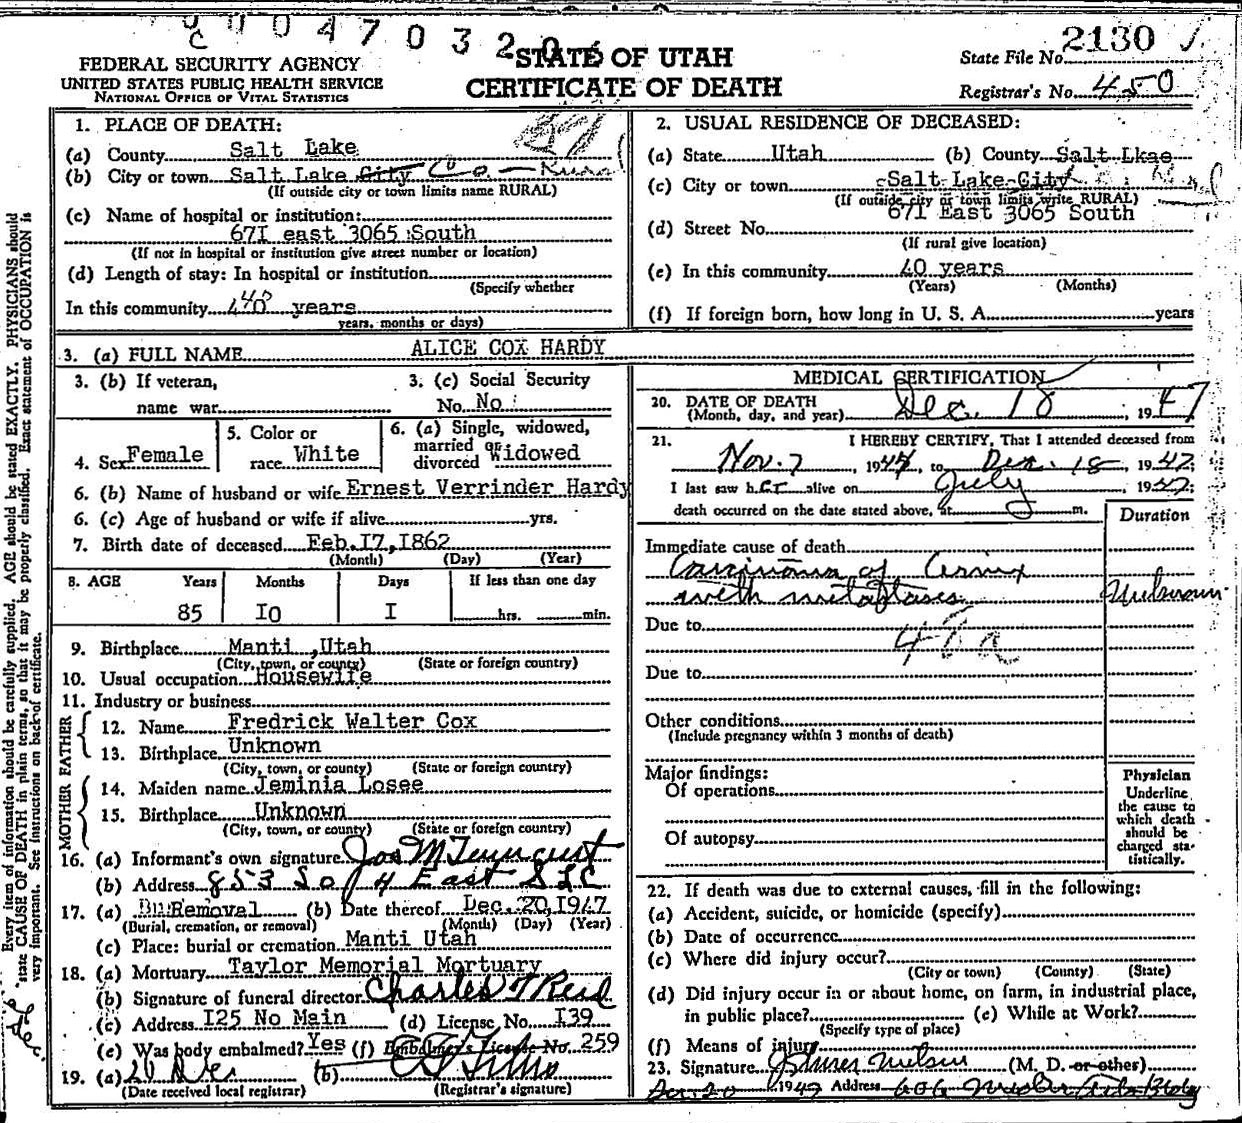 0 0 4 7 0 3 2 0
FEDERAL SECURITY AGENCY
UNITED STATES PUBLIC HEALTH SERVICE
NATIONAL OFFICE OF VITAL STATISTICS
STATE OF UTAH
CERTIFICATE OF DEATH
State File No. 2130
Registrar's No. 450
1. PLACE OF DEATH:
(a) County Salt Lake
(b) City or town Salt Lake City Co — Rural
(If outside city or town limits name RURAL)
(c) Name of hospital or institution:
67I east 3065 South
(If not in hospital or institution give street number or location)
(d) Length of stay: In hospital or institution
(Specify whether
In this community 40 years
years, months or days)
2. USUAL RESIDENCE OF DECEASED:
(a) State Utah (b) County Salt Lkae
(c) City or town Salt Lake City
(If outside city or town limits write RURAL)
67I East 3065 South
(d) Street No.
(If rural give location)
(e) In this community 40 years
(Years) (Months)
(f) If foreign born, how long in U. S. A. years
3. (a) FULL NAME ALICE COX HARDY
3. (b) If veteran,
name war
3. (c) Social Security
No. No
4. Sex Female
5. Color or
race White
6. (a) Single, widowed,
married or
divorced Widowed
6. (b) Name of husband or wife Ernest Verrinder Hardy
6. (c) Age of husband or wife if alive yrs.
7. Birth date of deceased Feb.I7,I862
(Month) (Day) (Year)
8. AGE Years Months Days If less than one day
85 IO I hrs. min.
9. Birthplace Manti ,Utah
(City, town, or county) (State or foreign country)
10. Usual occupation Housewife
11. Industry or business
FATHER
12. Name Fredrick Walter Cox
13. Birthplace Unknown
(City, town, or county) (State or foreign country)
MOTHER
14. Maiden name Jeminia Losee
15. Birthplace Unknown
(City, town, or county) (State or foreign country)
16. (a) Informant's own signature
(b) Address 853 So 4 East SLC
17. (a) Removal (b) Date thereof Dec. 20,I947
(Burial, cremation, or removal) (Month) (Day) (Year)
(c) Place: burial or cremation Manti Utah
18. (a) Mortuary Taylor Memorial Mortuary
(b) Signature of funeral director Charles T Reid
(c) Address I25 No Main (d) License No. I39
(e) Was body embalmed? Yes (f) Embalmer's License No. 259
19. (a) 20 Dec (b)
(Date received local registrar) (Registrar's signature)
MEDICAL CERTIFICATION
20. DATE OF DEATH
(Month, day, and year) Dec. 18, 1947
21. I HEREBY CERTIFY, That I attended deceased from
Nov. 7, 1947, to Dec. 18, 1947;
I last saw her alive on July, 1947;
death occurred on the date stated above, at m.
Duration
Immediate cause of death
Carcinoma of Cervix
with metastases Unknown
Due to
48a
Due to
Other conditions
(Include pregnancy within 3 months of death)
Major findings:
Of operations
Of autopsy
Physician
Underline
the cause to
which death
should be
charged sta-
tistically.
22. If death was due to external causes, fill in the following:
(a) Accident, suicide, or homicide (specify)
(b) Date of occurrence
(c) Where did injury occur?
(City or town) (County) (State)
(d) Did injury occur in or about home, on farm, in industrial place,
in public place? (e) While at Work?
(Specify type of place)
(f) Means of injury
23. Signature (M. D. or other)
Dec. 20 1947 Address 606 Bldg
Every item of information should be carefully supplied. AGE should be stated EXACTLY. PHYSICIANS should
state CAUSE OF DEATH in plain terms, so that it may be properly classified. Exact statement of OCCUPATION is
very important. See instructions on back of certificate.